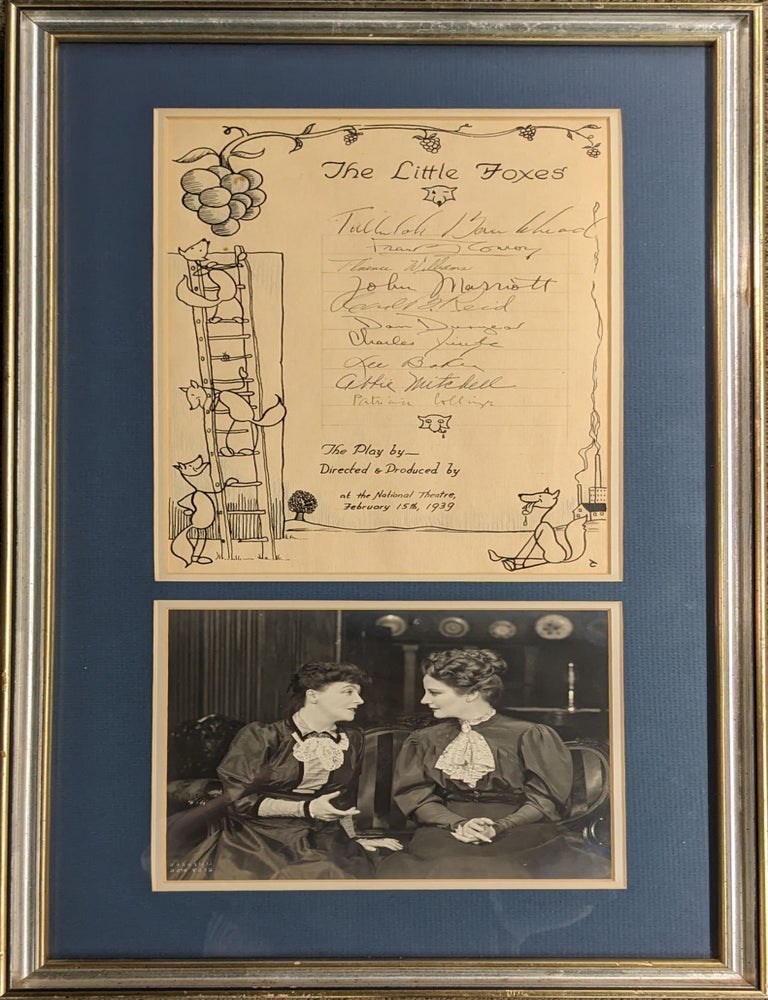 The Little Foxes
Tallulah Bankhead
Frank Conroy
Florence Williams
John Marriott
Carl B. Reid
Dan Duryea
Charles Dingle
Lee Baker
Abbie Mitchell
Patricia Collinge
The Play by—
Directed & Produced by
at the National Theatre,
February 15th, 1939